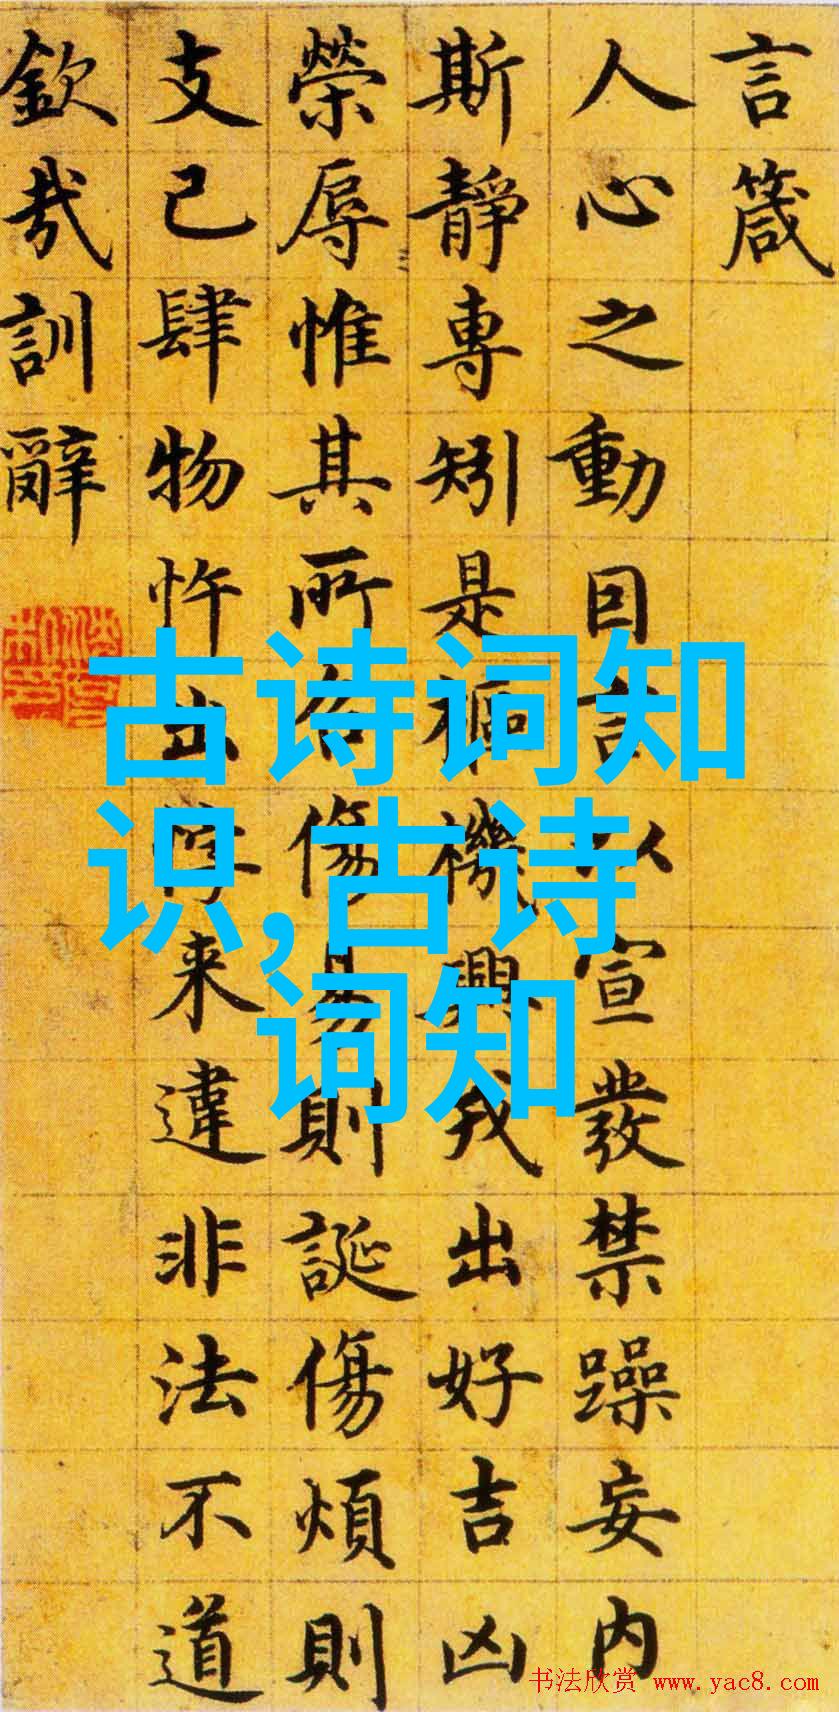 言箴
人心之動因言以宣發禁躁妄內
斯靜專矧是樞機興戎出好吉凶
榮辱惟其所召傷易則誕傷煩則
支己肆物忤出悖来違非法不道
欽哉訓辭
古诗词知
识,古诗
词知
书法欣赏 www.yac8.com